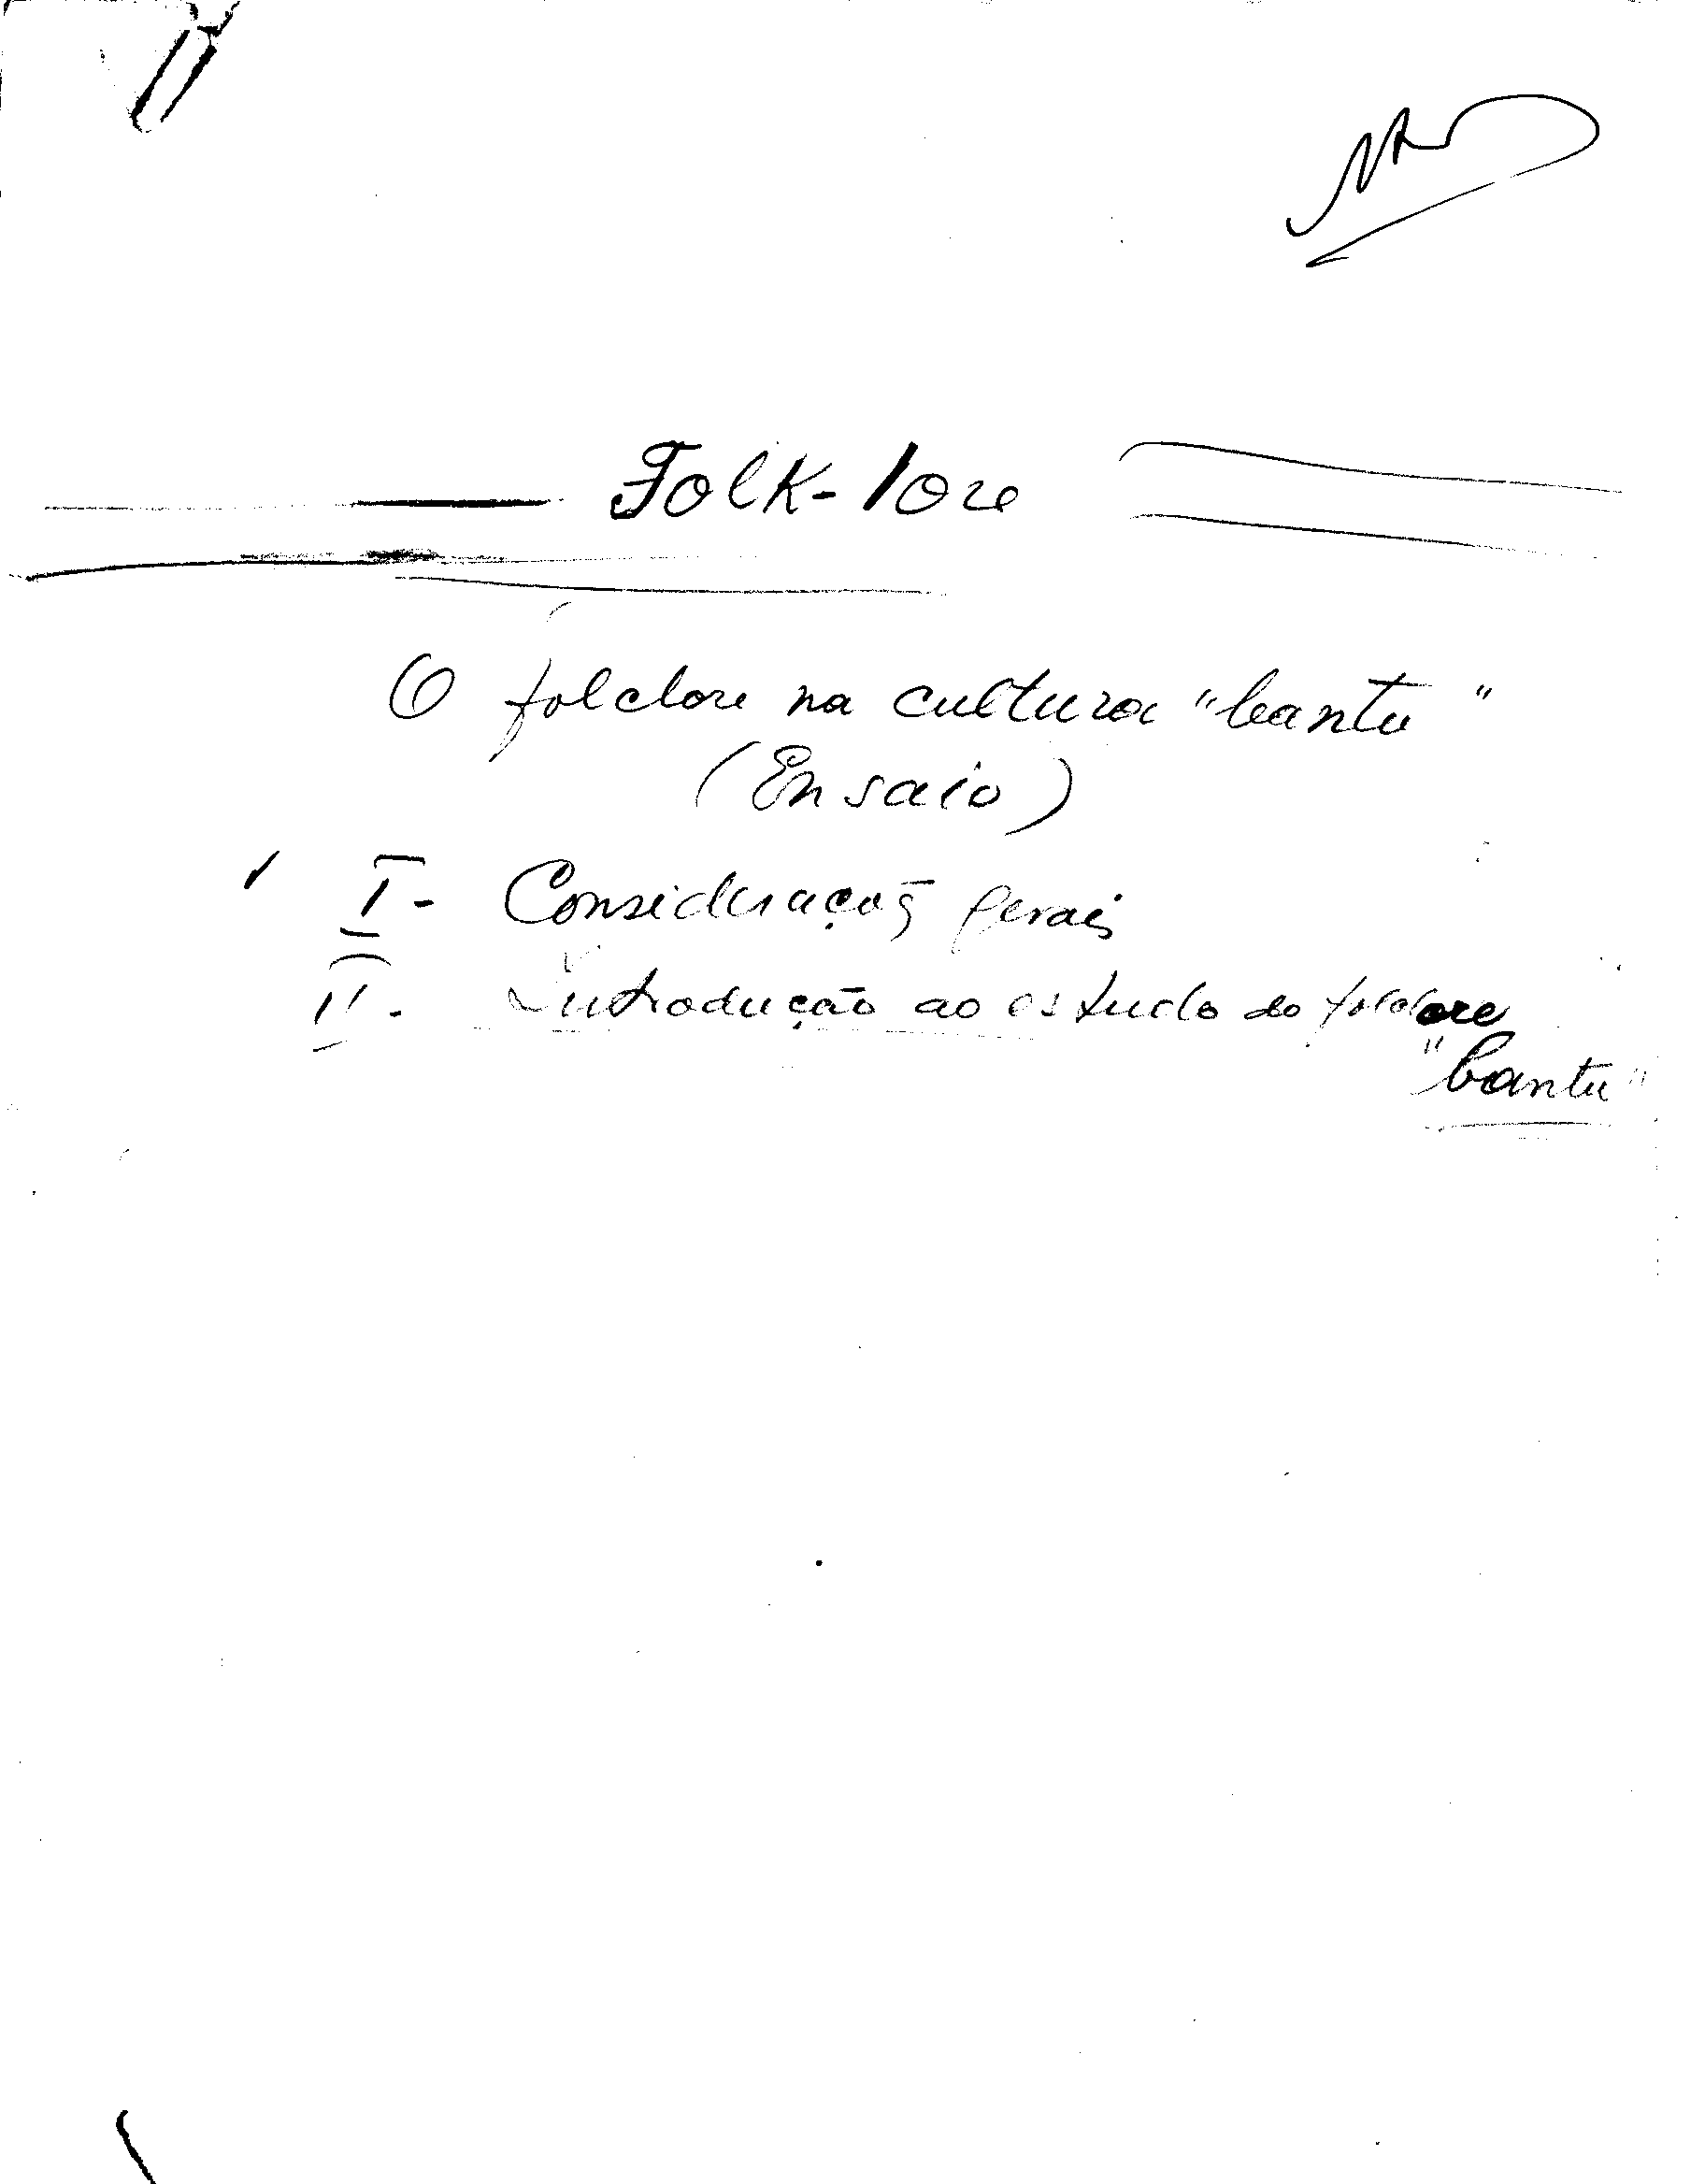 Folk-lore
O folclore na cultura "bantu"
(Ensaio)
I - Considerações gerais
II - Introdução ao estudo do folclore
"bantu"